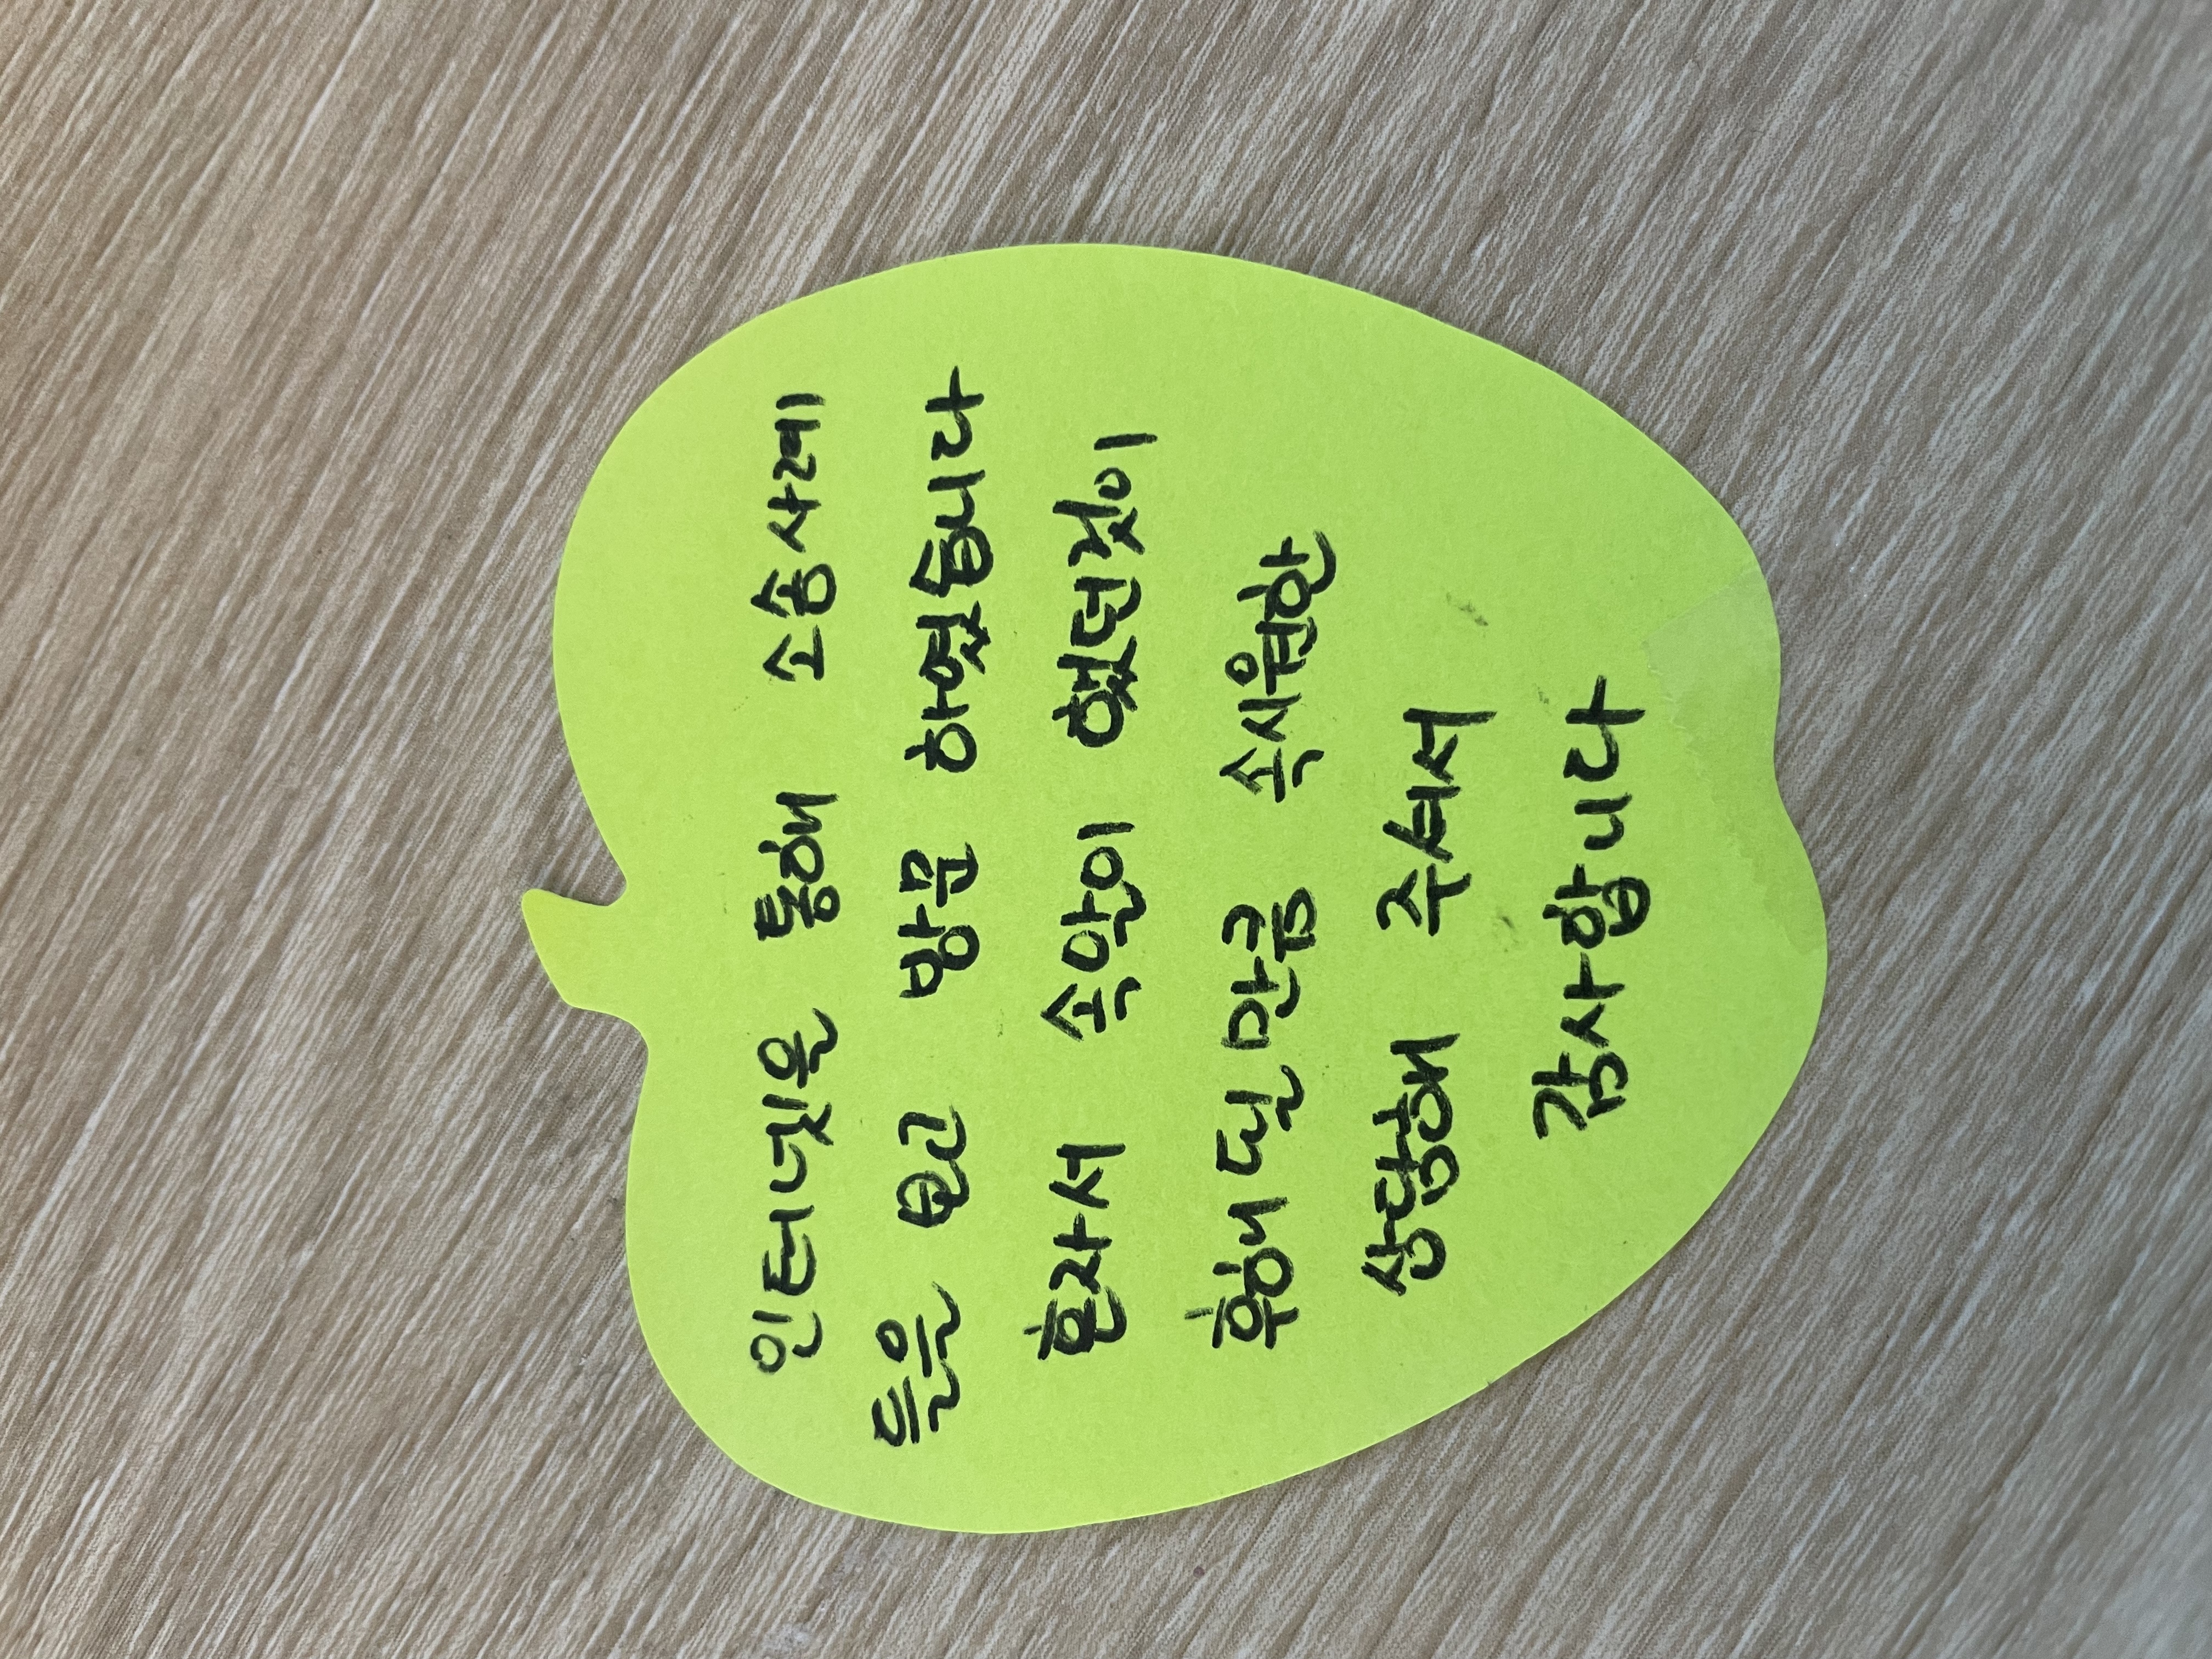 인터넷은 통해 소송사례
들은 보고 방문 하였습니다
혼자서 속앓이 했던것이
후회 된 만큼 속시원한
상담해 주셔서
감사합니다